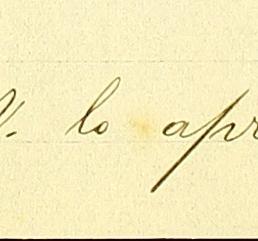 V. lo apr